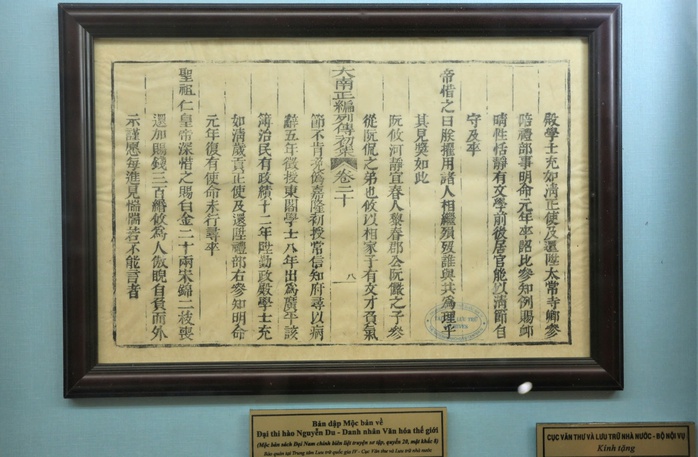 殿學士充如清正使及還陞太常寺卿參
陪禮部事明命元年卒詔比參知例賜卹
晴性恬靜有文學前後居官能以清節自
守及卒
帝惜之曰朕擢用諸人相繼殞歿誰與共為理乎
其見獎如此
阮攸河靜宜春人黎春郡公阮儼之子參
從阮侃之弟也攸以相家子有文才負氣
節不肯流偽嘉隆初授常信知府尋以病
辭五年徵授東閣學士八年出為廣平該
簿治民有政績十二年陞勤政殿學士充
如清歲貢正使及還陞禮部右參知明命
元年復有使命未行尋卒
聖祖仁皇帝深惜之賜白金二十兩宋錦二枝喪
還加賜錢三百緡攸為人傲睨自負而外
示謹應每進見惴惴若不能言者
大南正編列傳初集 卷二十
八
Bản dập Mộc bản về
Đại thi hào Nguyễn Du - Danh nhân Văn hóa thế giới
(Mộc bản sách Đại Nam chính biên liệt truyện sơ tập, quyển 20, mặt khắc 8)
Bảo quản tại Trung tâm Lưu trữ quốc gia IV - Cục Văn thư và Lưu trữ nhà nước
CỤC VĂN THƯ VÀ LƯU TRỮ NHÀ NƯỚC - BỘ NỘI VỤ
Kính tặng